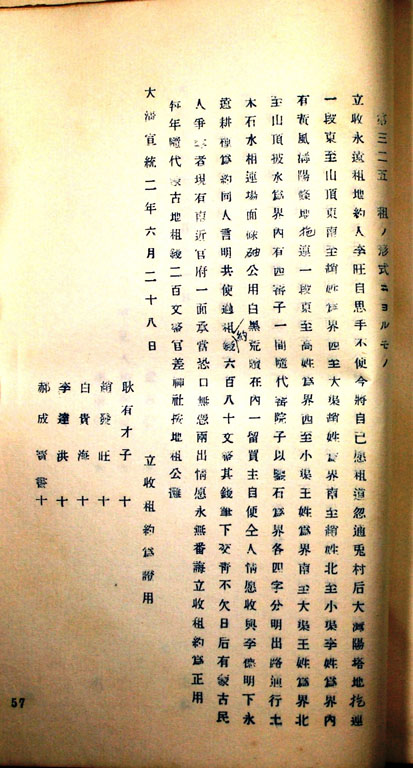 第三二五　租ノ形式ニヨルモノ
立收永遠租地約人李旺自思手不便今將自己愿租道忽適兎村后大海陽塔地拖連
一段東至山頂東南至趙姓爲界四至大渠趙姓爲界南至趙姓北至小渠李姓爲界內
有黃風 陽 地拖連一段東至高姓爲界西至小渠王姓爲界南至大渠王姓爲界北
至山頂被水爲界內有四窰子一間隨代窰院子以 石爲界各四字分明出路通行土
木石水相連場面碌 公用白黑荒 在內一留買主自便仝人情愿收與李德明下永
遠耕種爲約同人言明共使過租錢約六百八十文 其錢筆下交淸不欠日后有蒙古民
人爭 者現有南近官府一面承當恐口無憑兩出情愿永無番悔立收租約爲正用
每年隨代蒙古地租錢二百文 官差神社按地租公攤
大淸宣統二年六月二十八日
立收租約爲證用
耿有才子　十
趙發旺　十
白貴海　十
李達洪　十
郝成 書十
57